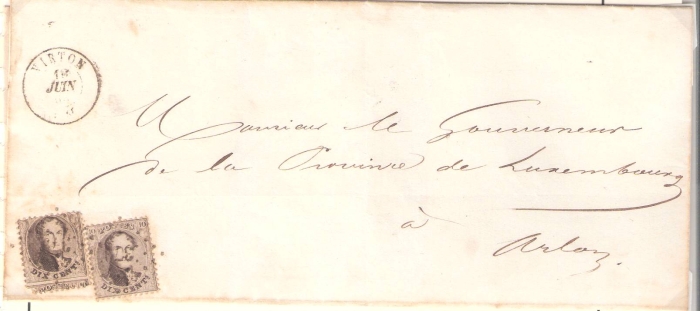 VIRTON
JUIN
Monsieur le Gouverneur
de la Province de Luxembourg
à
Arlon.
DIX CENT
DIX CENT